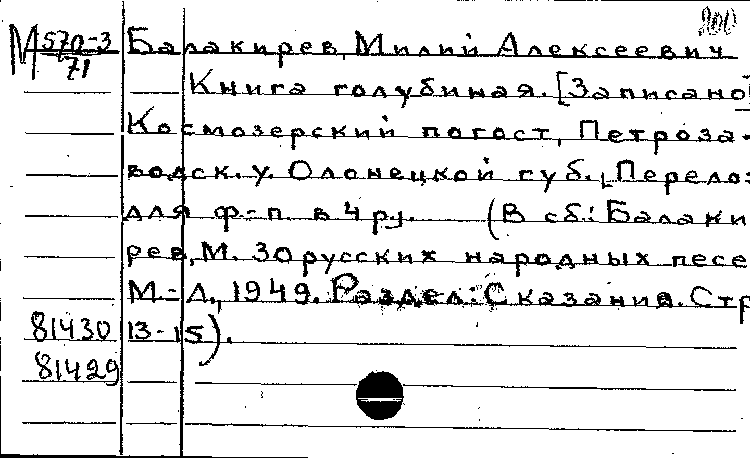 М 570-3/71 Балакирев, Милий Алексеевич
Книга голубиная. [Записано
Космозерский погост, Петроза-
водск. у. Олонецкой губ., Перелож
для ф-п. в 4 р.]. (В сб.: Балаки
рев, М. 30 русских народных песе
М.-Л., 1949. Раздел: Сказания. Стр
81430 13-15).
81429